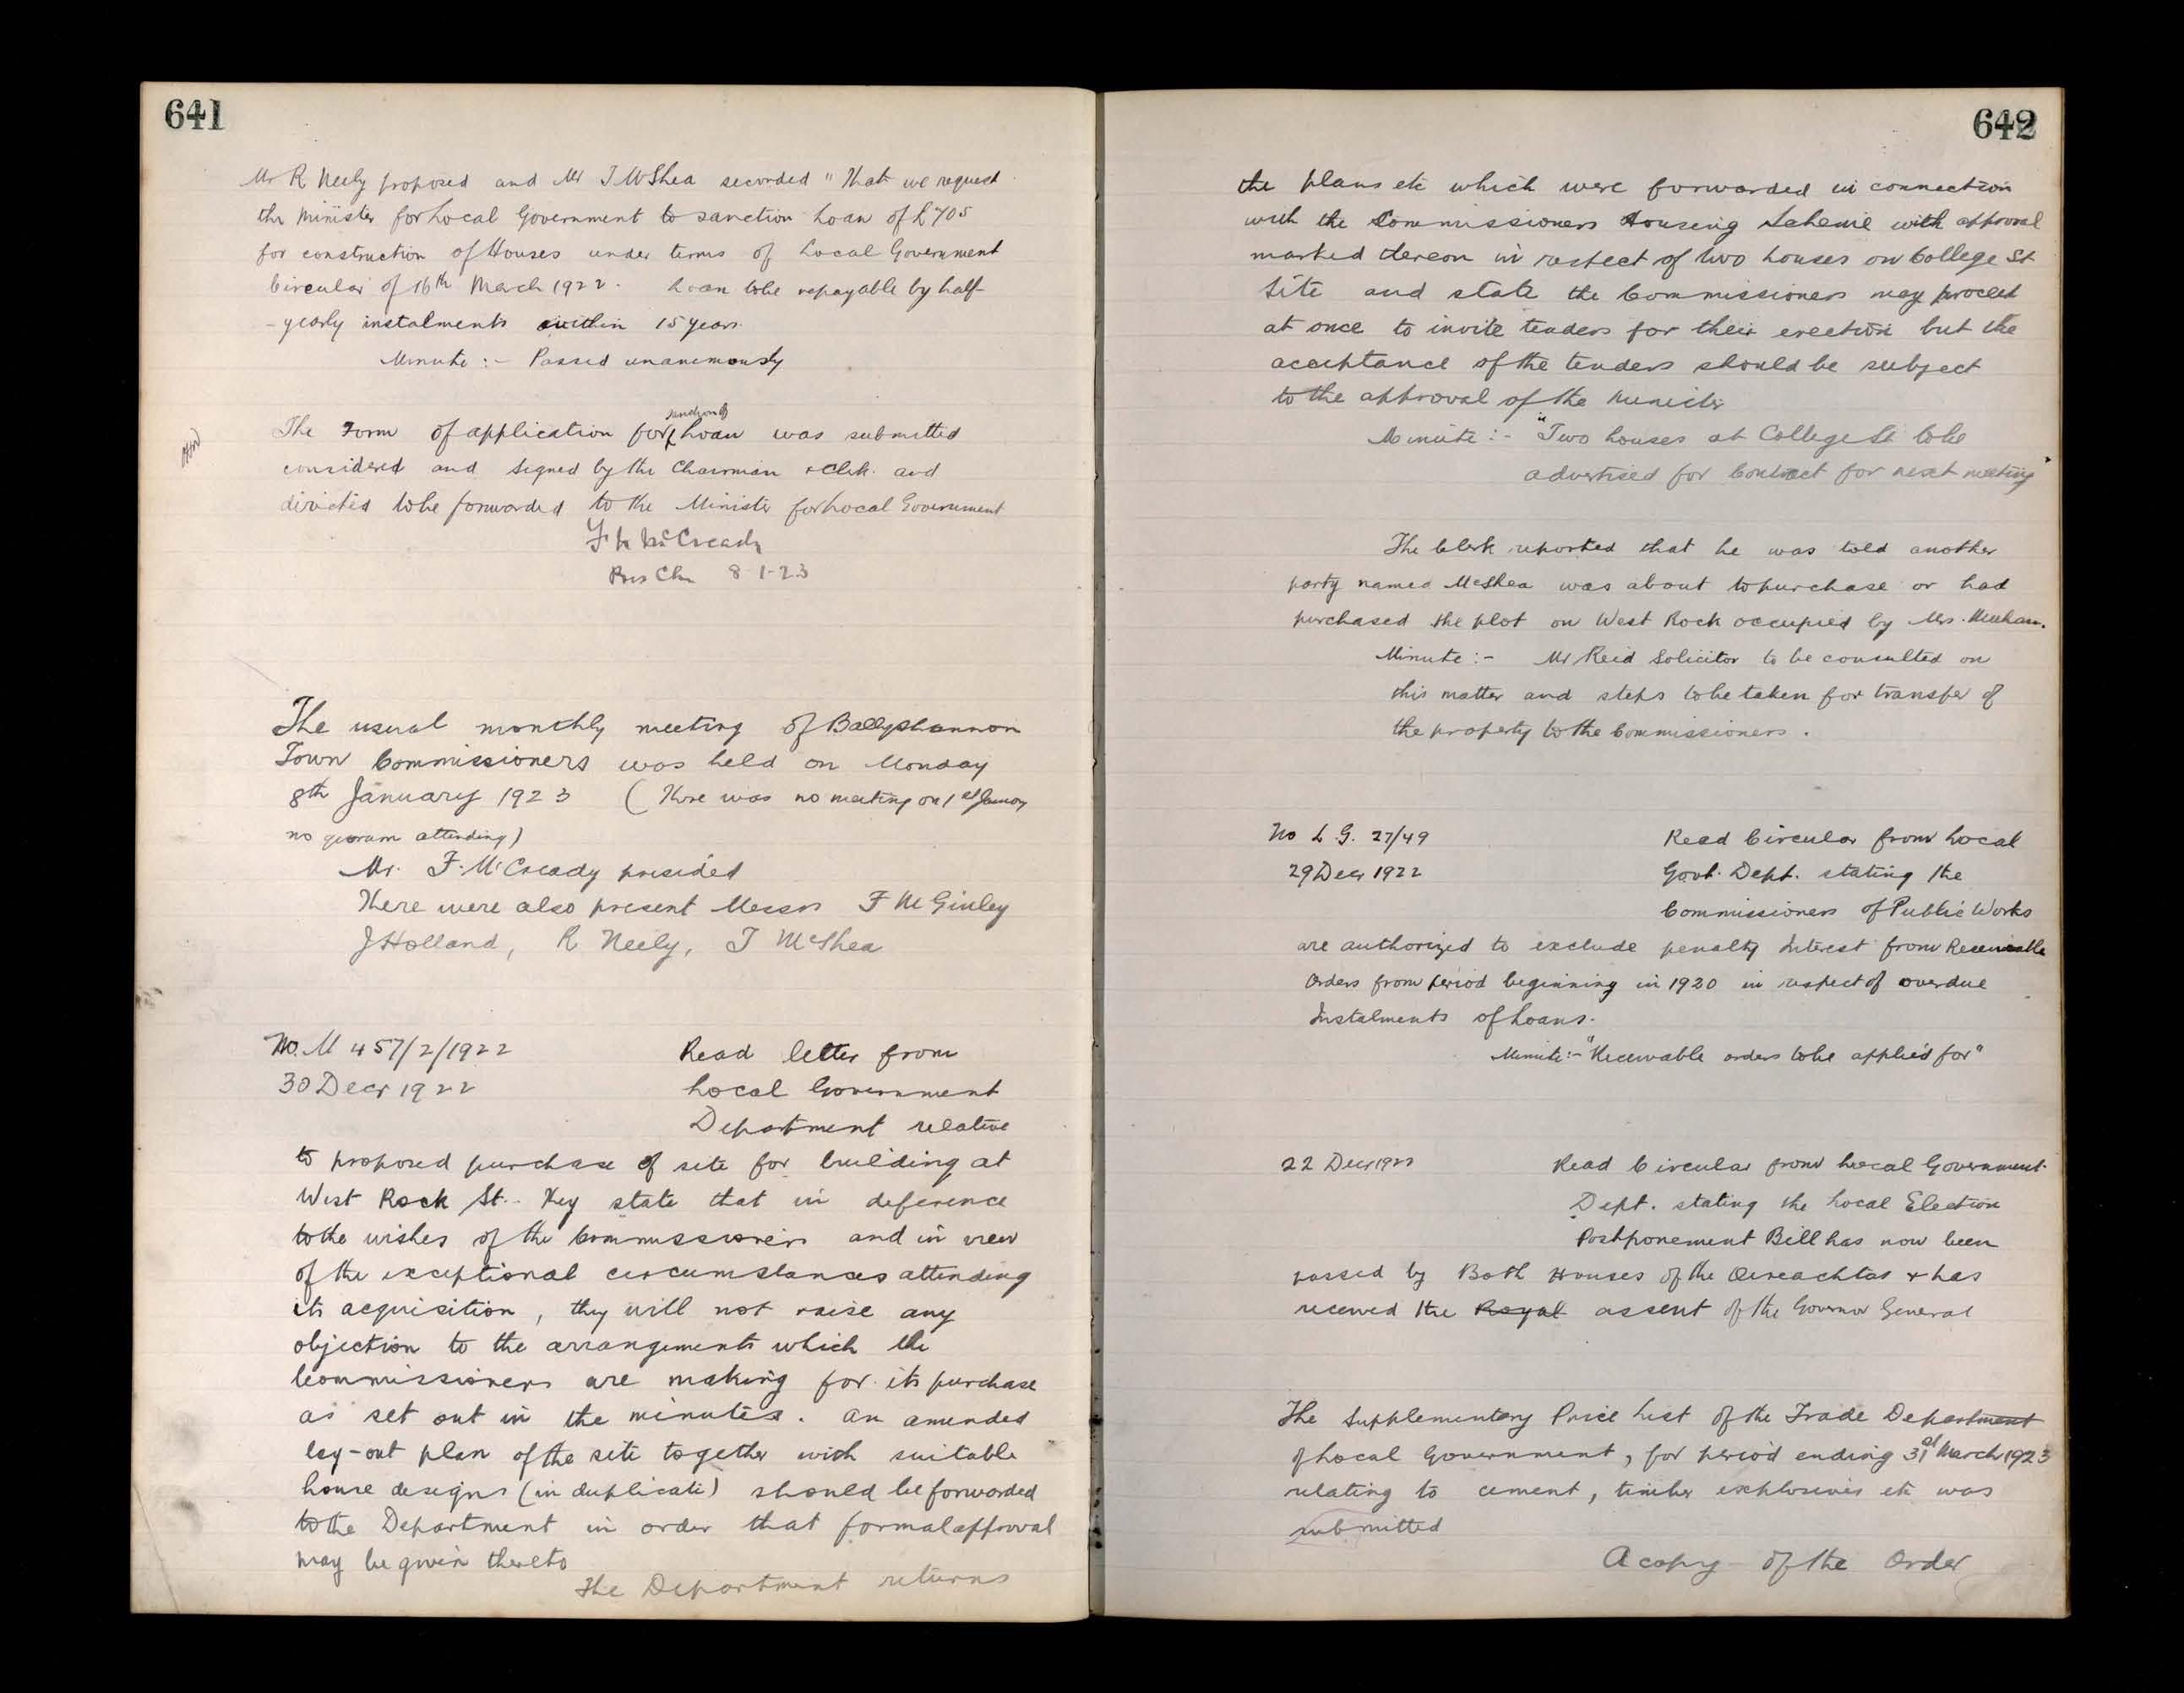 641
Mr R Neely proposed and Mr T McShea seconded "That we request
the Minister for Local Government to sanction Loan of £705
for construction of Houses under terms of Local Government
Circular of 16th March 1922. Loan to be repayable by half
-yearly instalments within 15 years.
Minute :- Passed unanimously
sanction of
The Form of application for Loan was submitted
considered and signed by the Chairman & Clerk. and
directed to be forwarded to the Minister for Local Government
McCready
Pres Chn 8-1-23
The usual monthly meeting of Ballyshannon
Town Commissioners was held on Monday
8th January 1923 (There was no meeting on 1st January
no quorum attending)
Mr. F. McCready presided
There were also present Messrs F McGinley
J Holland, R Neely, T McShea
No. M 457/2/1922
30 Decr 1922
Read letter from
Local Government
Department relative
to proposed purchase of site for building at
West Rock St. They state that in deference
to the wishes of the Commissioners and in view
of the exceptional circumstances attending
its acquisition, they will not raise any
objection to the arrangements which the
Commissioners are making for its purchase
as set out in the minutes. An amended
lay-out plan of the site together with suitable
house designs (in duplicate) should be forwarded
to the Department in order that formal approval
may be given thereto
The Department returns
642
the plans etc which were forwarded in connection
with the Commissioners Housing Scheme with approval
marked thereon in respect of two houses on College St
Site and state the Commissioners may proceed
at once to invite tenders for their erection but the
acceptance of the tenders should be subject
to the approval of the Minister
Minute :- "Two houses at College St to be
advertised for Contract for next meeting"
The Clerk reported that he was told another
party named McShea was about to purchase or had
purchased the plot on West Rock occupied by Mrs. Meehan.
Minute :- Mr Reid Solicitor to be consulted on
this matter and steps to be taken for transfer of
the property to the Commissioners.
No L.G. 27/49
29 Decr 1922
Read Circular from Local
Govt. Dept. stating the
Commissioners of Public Works
are authorized to exclude penalty Interest from Receivable
Orders from period beginning in 1920 in respect of overdue
Instalments of Loans.
Minute :- "Receivable orders to be applied for"
22 Decr 1922
Read Circular from Local Government
Dept. stating the Local Election
Postponement Bill has now been
passed by Both Houses of the Oireachtas & has
received the Royal assent of the Governor General
The Supplementary Price List of the Trade Department
of Local Government, for period ending 31st March 1923
relating to cement, timber explosives etc was
submitted
A copy of the Order